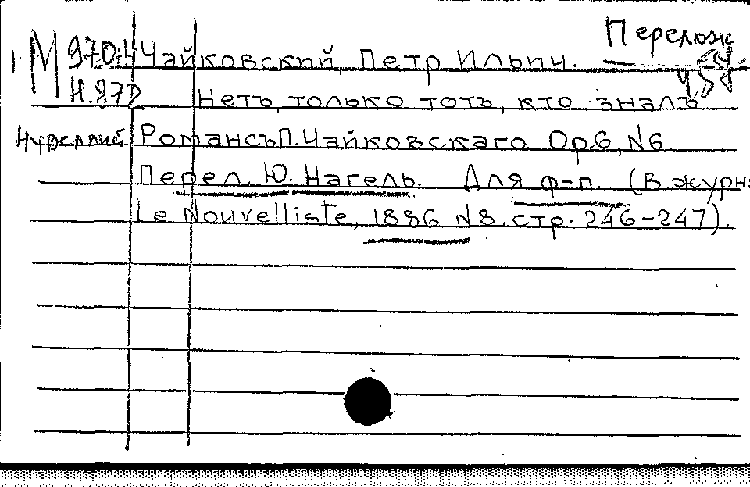 Перелож
М 970:Н Чайковский, Петр Ильич.
Н.87D Нетъ, только тотъ, кто зналъ
Романсъ П. Чайковскаго Op.6, №6
Перел. Ю. Нагель. Для ф-п. (В журн.
Le Nouvelliste, 1886 №8. стр. 246-247).